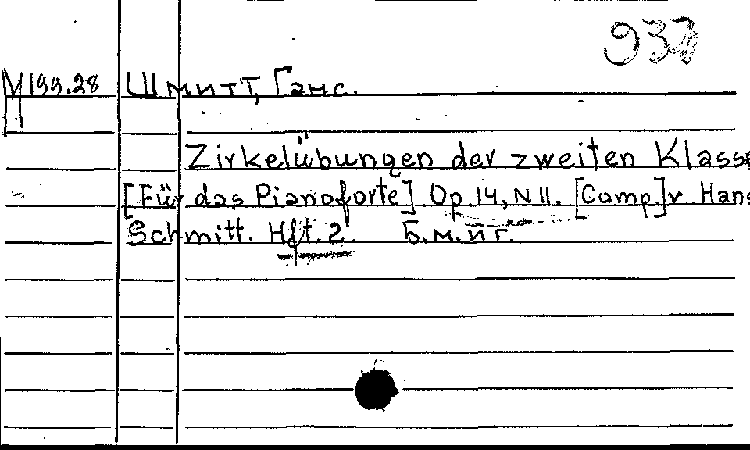 937
M 199.28 Шмитт, Ганс.
Zirkelübungen der zweiten Klasse
[Für das Pianoforte] Op. 14, N II. [Comp.] v Hans
Schmitt. Hft. 2. Б.м.иг.